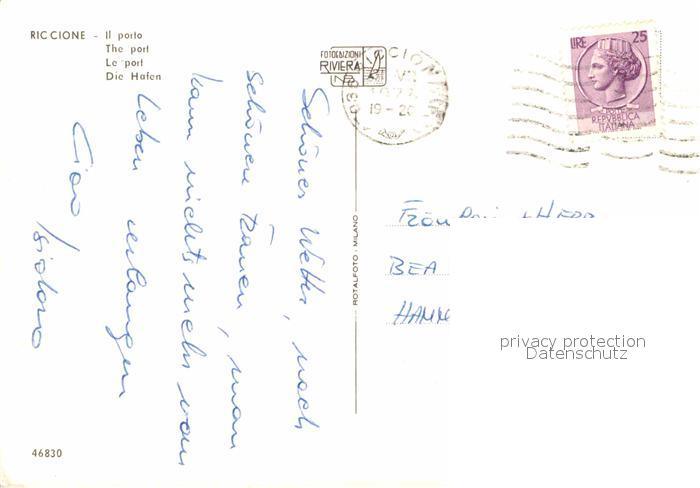 RICCIONE - Il porto
The port
Le port
Die Hafen
FOTOEDIZIONI
RIVIERA
19-20
LIRE 25
REPVBBLICA
ITALIANA
Schönes Wetter, noch
schönere Frauen, man
kann nichts mehr vom
Leben verlangen
Ciao Isidoro
ROTALFOTO - MILANO
BEA
privacy protection
Datenschutz
46830